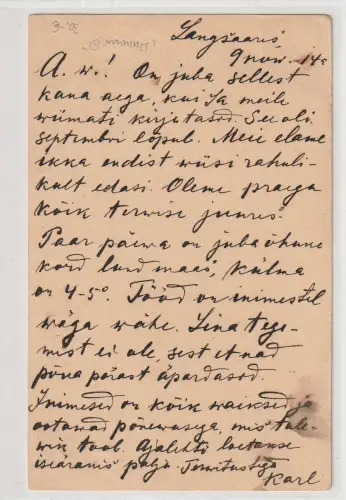 Langsaaris
9 nov. 14 c
A. w.! On juba sellest
kana aega, kui Ja meile
wiimati kirjutasid. See oli
septembri lõpul. Meie elame
ikka endist wiisi rahuli-
kult edasi. Oleme praegu
kõik terwise juures.
Paar päewa on juba õhune
kord lund maas, külma
on 4-5°. Tööd on inimestel
wäga wähe. Lina tege-
mist ei ole, sest et nad
põua pärast äpardasid.
Inimesed on kõik waiksed ja
ootawad põnewusega, mis tule-
wik toob. Ajalehti loetakse
iseäranis palju. Terwitustega
Karl